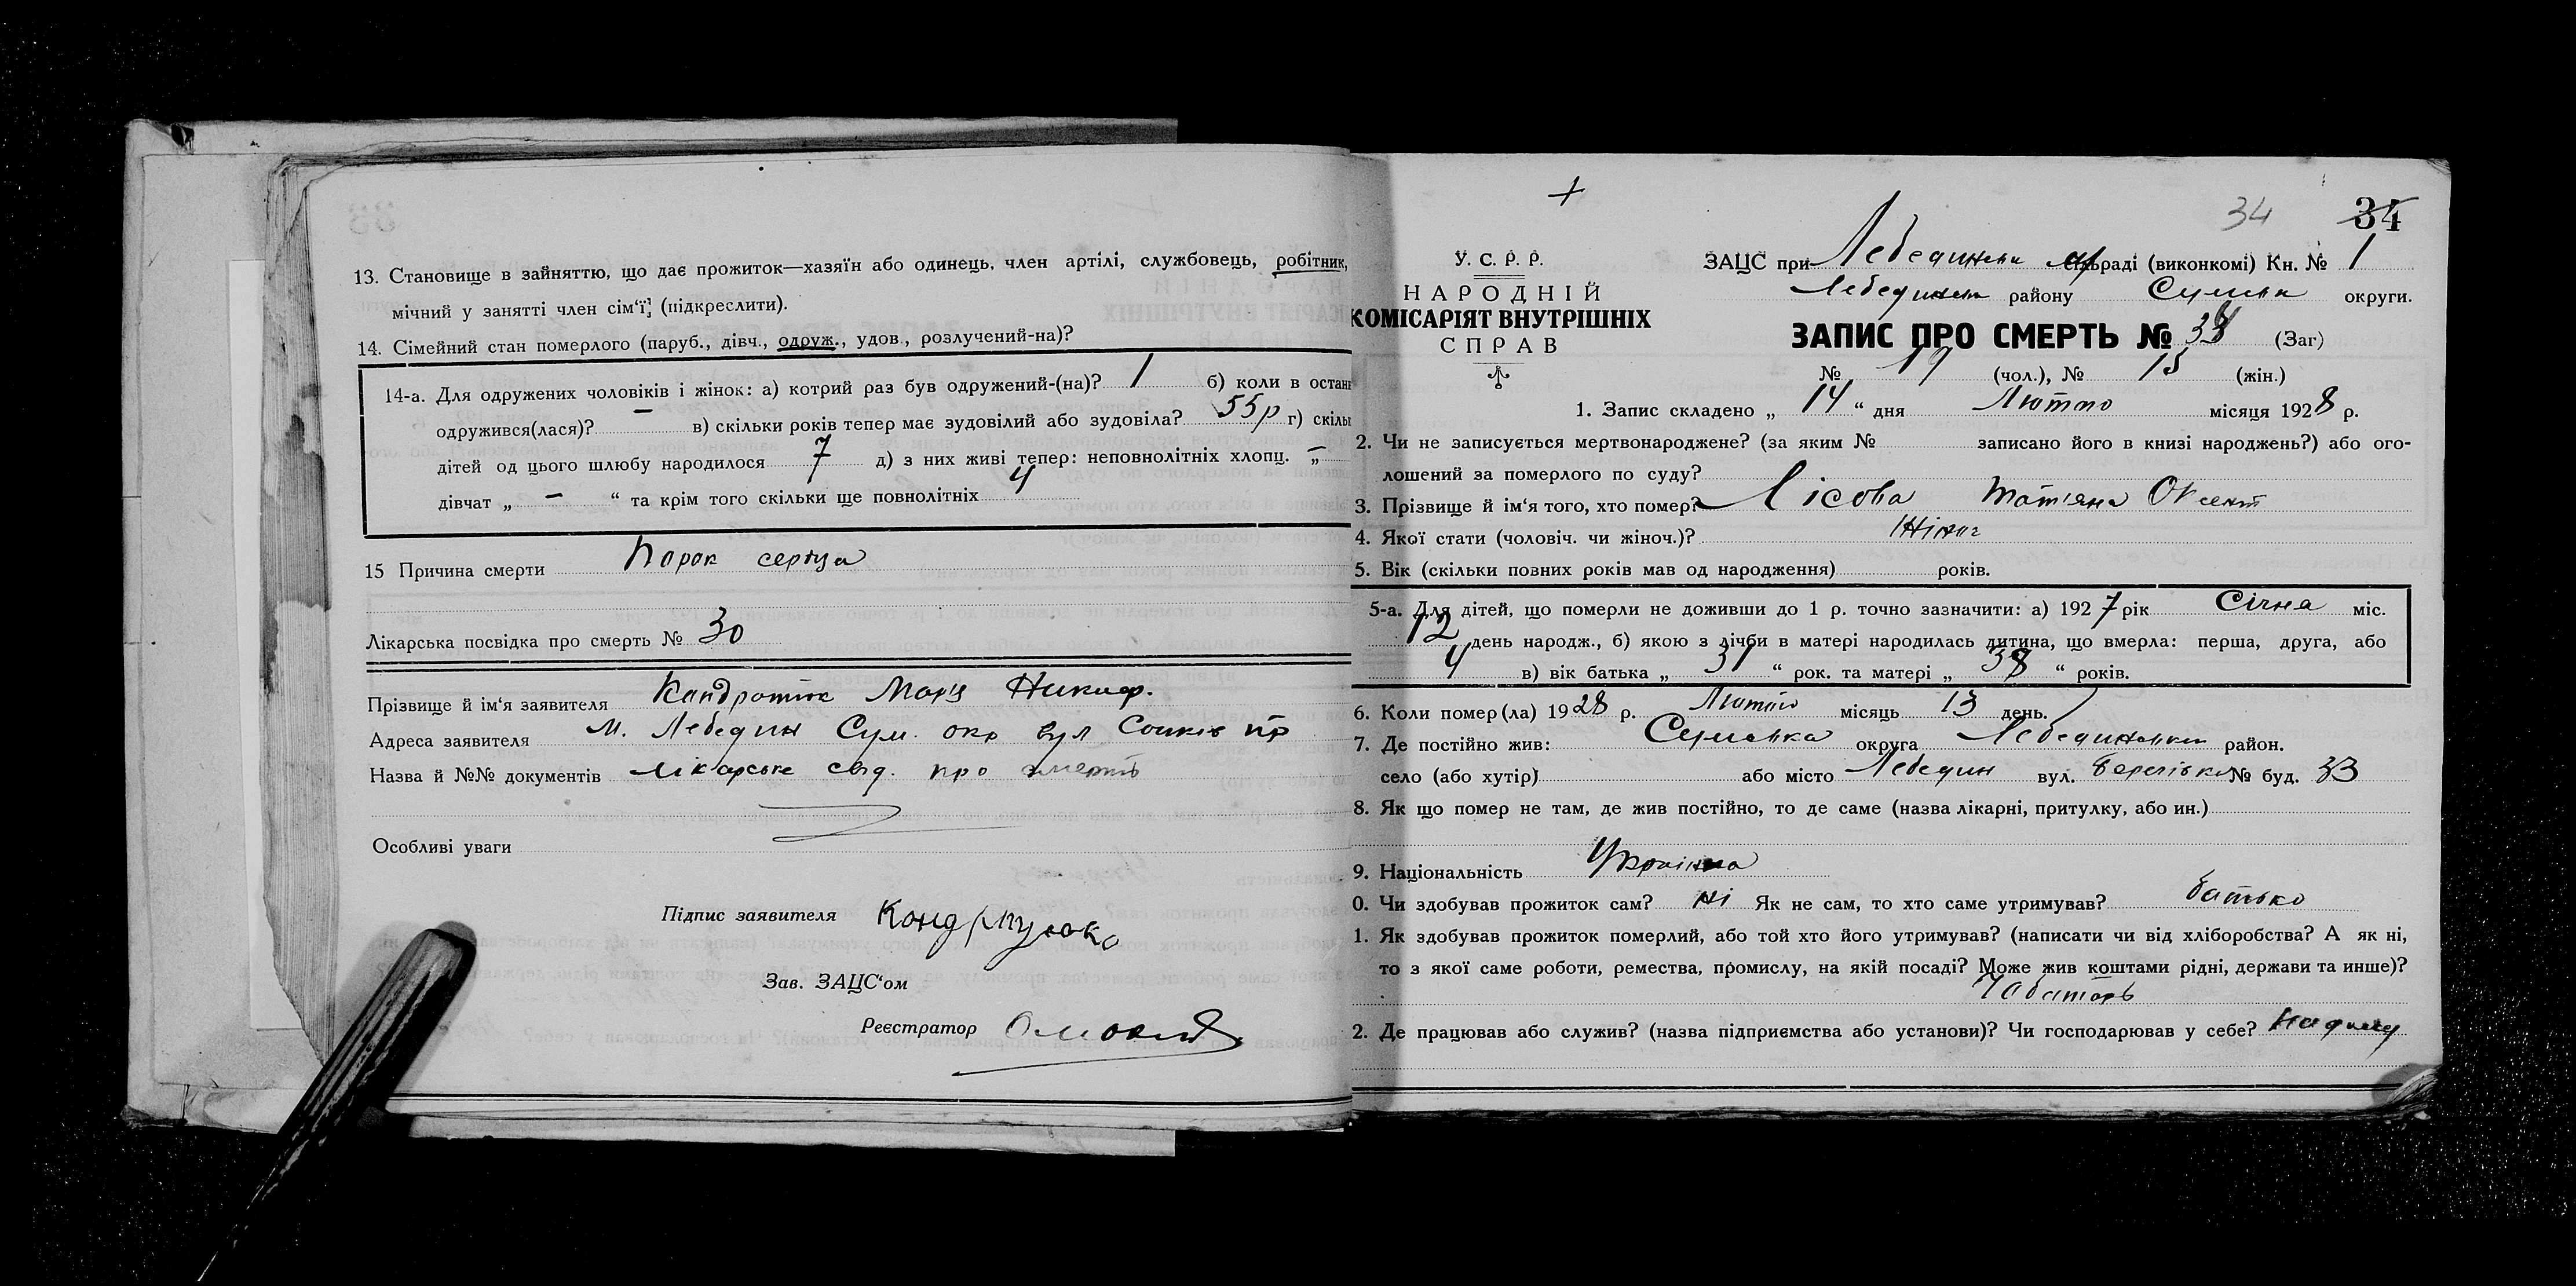 13. Становище в зайняттю, що дає прожиток—хазяїн або одинець, член артілі, службовець, робітник,
мічний у занятті член сім‘ї; (підкреслити).
14. Сімейний стан померлого (паруб., дівч., одруж., удов., розлучений-на)?
14-а. Для одружених чоловіків і жінок: а) котрий раз був одружений-(на)? 1 б) коли в остан
одружився(лася)? — в) скільки років тепер має зудовілий або зудовіла? 55 р г) скіль
дітей од цього шлюбу народилося 7 д) з них живі тепер: неповнолітніх хлопц. „ —
дівчат „ — “ та крім того скільки ще повнолітніх 4
15 Причина смерти Порок сердца
Лікарська посвідка про смерть № 30
Прізвище й ім‘я заявителя Никиф.
Адреса заявителя м. Лебедин Сум. окр вул
Назва й №№ документів лікарське свід. про смерть
Особливі уваги
Підпис заявителя
Зав. ЗАЦС‘ом
Реєстратор
34 34
У. С. Р. Р.
НАРОДНІЙ
КОМІСАРІЯТ ВНУТРІШНІХ
СПРАВ
ЗАЦС при сільраді (виконкомі) Кн. № 1
району Сумськ округи.
ЗАПИС ПРО СМЕРТЬ № (Заг)
№ 19 (чол.), № 15 (жін.)
1. Запис складено „ 14 “ дня Лютого місяця 1928 р.
2. Чи не записується мертвонароджене? (за яким № записано його в книзі народжень?) або ого-
лошений за померлого по суду?
3. Прізвище й ім‘я того, хто помер? Лісова Тат'яна Оксент
4. Якої стати (чоловіч. чи жіноч.)? Жіноч
5. Вік (скільки повних років мав од народження) років.
5-а. Для дітей, що померли не доживши до 1 р. точно зазначити: а) 1927 рік Січня міс.
12 день народж., б) якою з лічби в матері народилась дитина, що вмерла: перша, друга, або
4 в) вік батька „ 31 “ рок. та матері „ 38 “ років.
6. Коли помер(ла) 1928 р. Лютого місяць 13 день.
7. Де постійно жив: Сумська округа Лебединський район.
село (або хутір) або місто Лебедин вул. № буд. 33
8. Як що помер не там, де жив постійно, то де саме (назва лікарні, притулку, або ин.)
9. Національність Українка
0. Чи здобував прожиток сам? ні Як не сам, то хто саме утримував? батько
1. Як здобував прожиток померлий, або той хто його утримував? (написати чи від хліборобства? А як ні,
то з якої саме роботи, ремества, промислу, на якій посаді? Може жив коштами рідні, держави та инше)?
Чоботарь
2. Де працював або служив? (назва підприємства або установи)? Чи господарював у себе? На дому